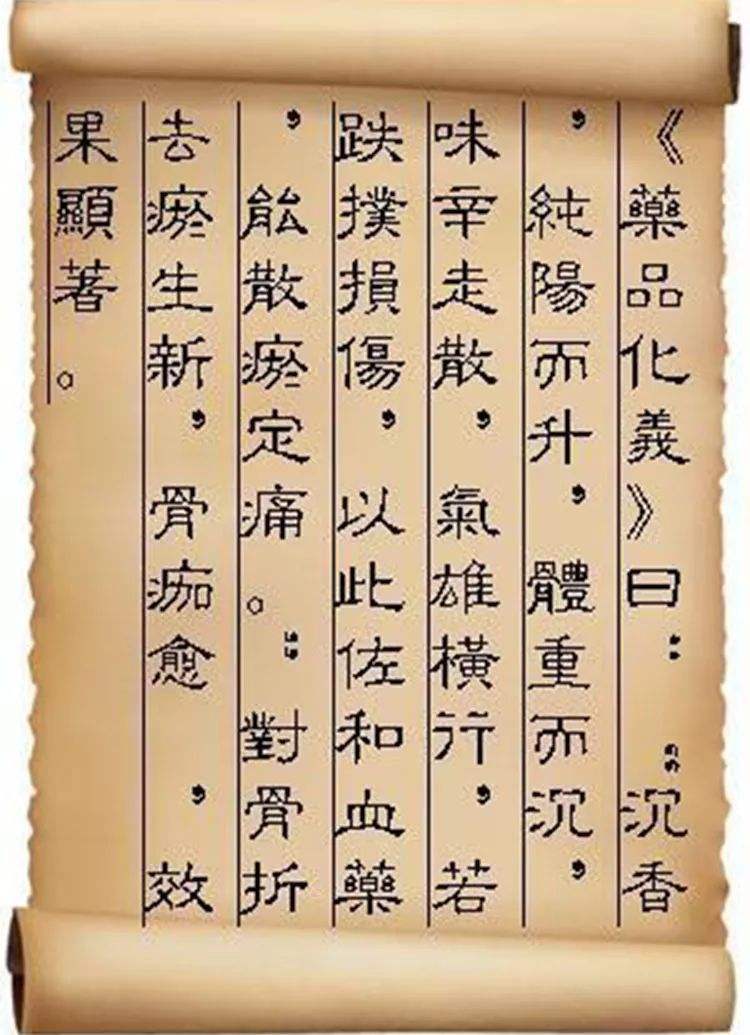 《藥品化義》曰:“沉香
,純陽而升,體重而沉,
味辛走散,氣雄橫行,若
跌撲損傷,以此佐和血藥
,能散瘀定痛。”對骨折
去瘀生新,骨痂愈,效
果顯著。